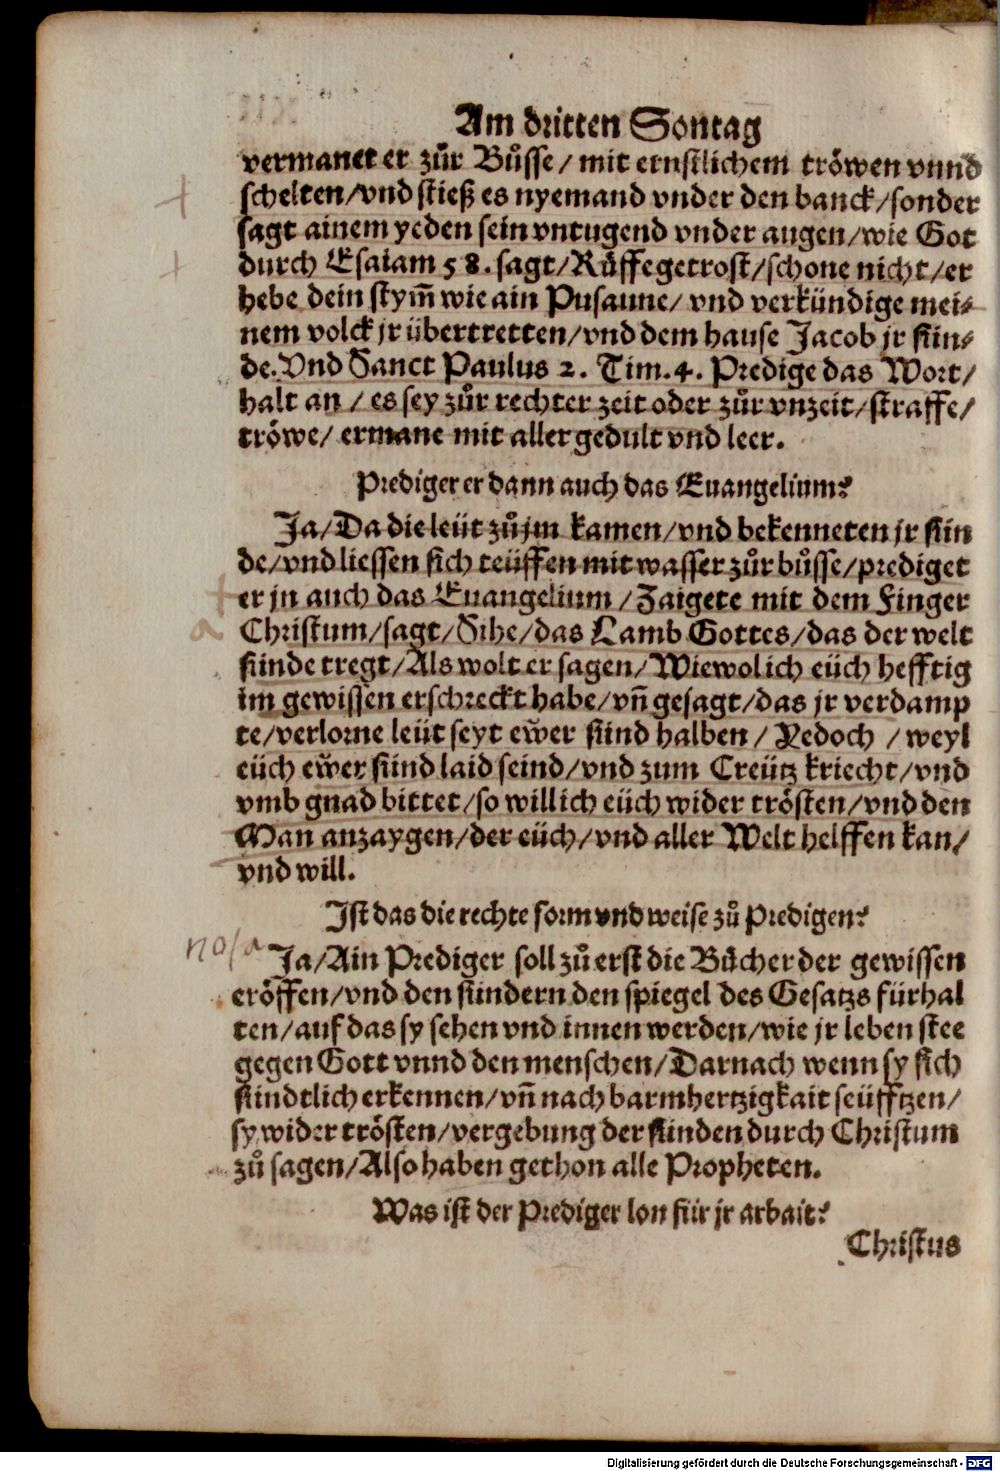 Am dritten Sontag
vermanet er zůr Bůsse / mit ernstlichem tröwen vnnd
schelten/vnd stieß es nyemand vnder den banck/sonder
sagt ainem yeden sein vntugend vnder augen/wie Got
durch Esaiam 58. sagt/Růffe getrost/schone nicht/er
hebe dein stym̃ wie ain Pusaune/ vnd verkündige mei⸗
nem volck jr übertretten/vnd dem hause Jacob jr sün⸗
de. Vnd Sanct Paulus 2. Tim. 4. Predige das Wort/
halt an / es sey zůr rechter zeit oder zůr vnzeit/straffe/
tröwe/ ermane mit aller gedult vnd leer.
Prediger er dann auch das Euangelium?
Ja/Da die leüt zů jm kamen/vnd bekenneten jr sün
de/vnd liessen sich teüffen mit wasser zůr bůsse/prediget
er jn auch das Euangelium /Zaigete mit dem Finger
Christum/sagt/Sihe/das Lamb Gottes/das der welt
sünde tregt/Als wolt er sagen/Wiewol ich eüch hefftig
im gewissen erschreckt habe/vñ gesagt/das jr verdamp
te/verlorne leüt seyt eẅer sünd halben / Yedoch / weyl
eüch eẅer sünd laid seind/vnd zum Creütz kriecht/vnd
vmb gnad bittet/so will ich eüch wider trösten/vnd den
Man anzaygen/der eüch/vnd aller Welt helffen kan/
vnd will.
Jst das die rechte form vnd weise zů Predigen?
nota
Ja/Ain Prediger soll zů erst die Bůcher der gewissen
eröffen/vnd den sündern den spiegel des Gesatzs fürhal
ten/auf das sy sehen vnd innen werden/wie jr leben stee
gegen Gott vnnd den menschen/Darnach wenn sy sich
sündtlich erkennen/vñ nach barmhertzigkait seüfftzen/
sy wider trösten/vergebung der sünden durch Christum
zů sagen/Also haben gethon alle Propheten.
Was ist der Prediger lon für jr arbait?
Christus
Digitalisierung gefördert durch die Deutsche Forschungsgemeinschaft - DFG